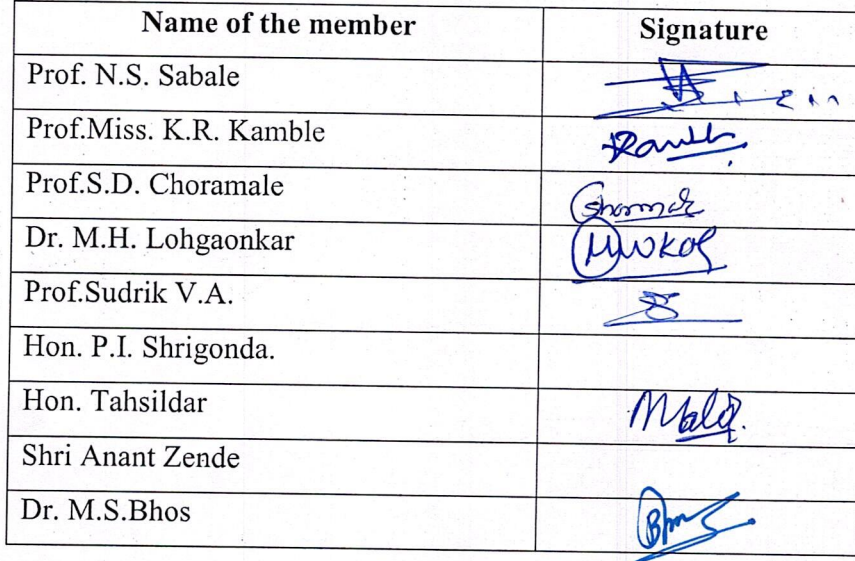 Name of the member Signature
Prof. N.S. Sabale
Prof.Miss. K.R. Kamble
Prof.S.D. Choramale
Dr. M.H. Lohgaonkar
Prof.Sudrik V.A.
Hon. P.I. Shrigonda.
Hon. Tahsildar
Shri Anant Zende
Dr. M.S.Bhos